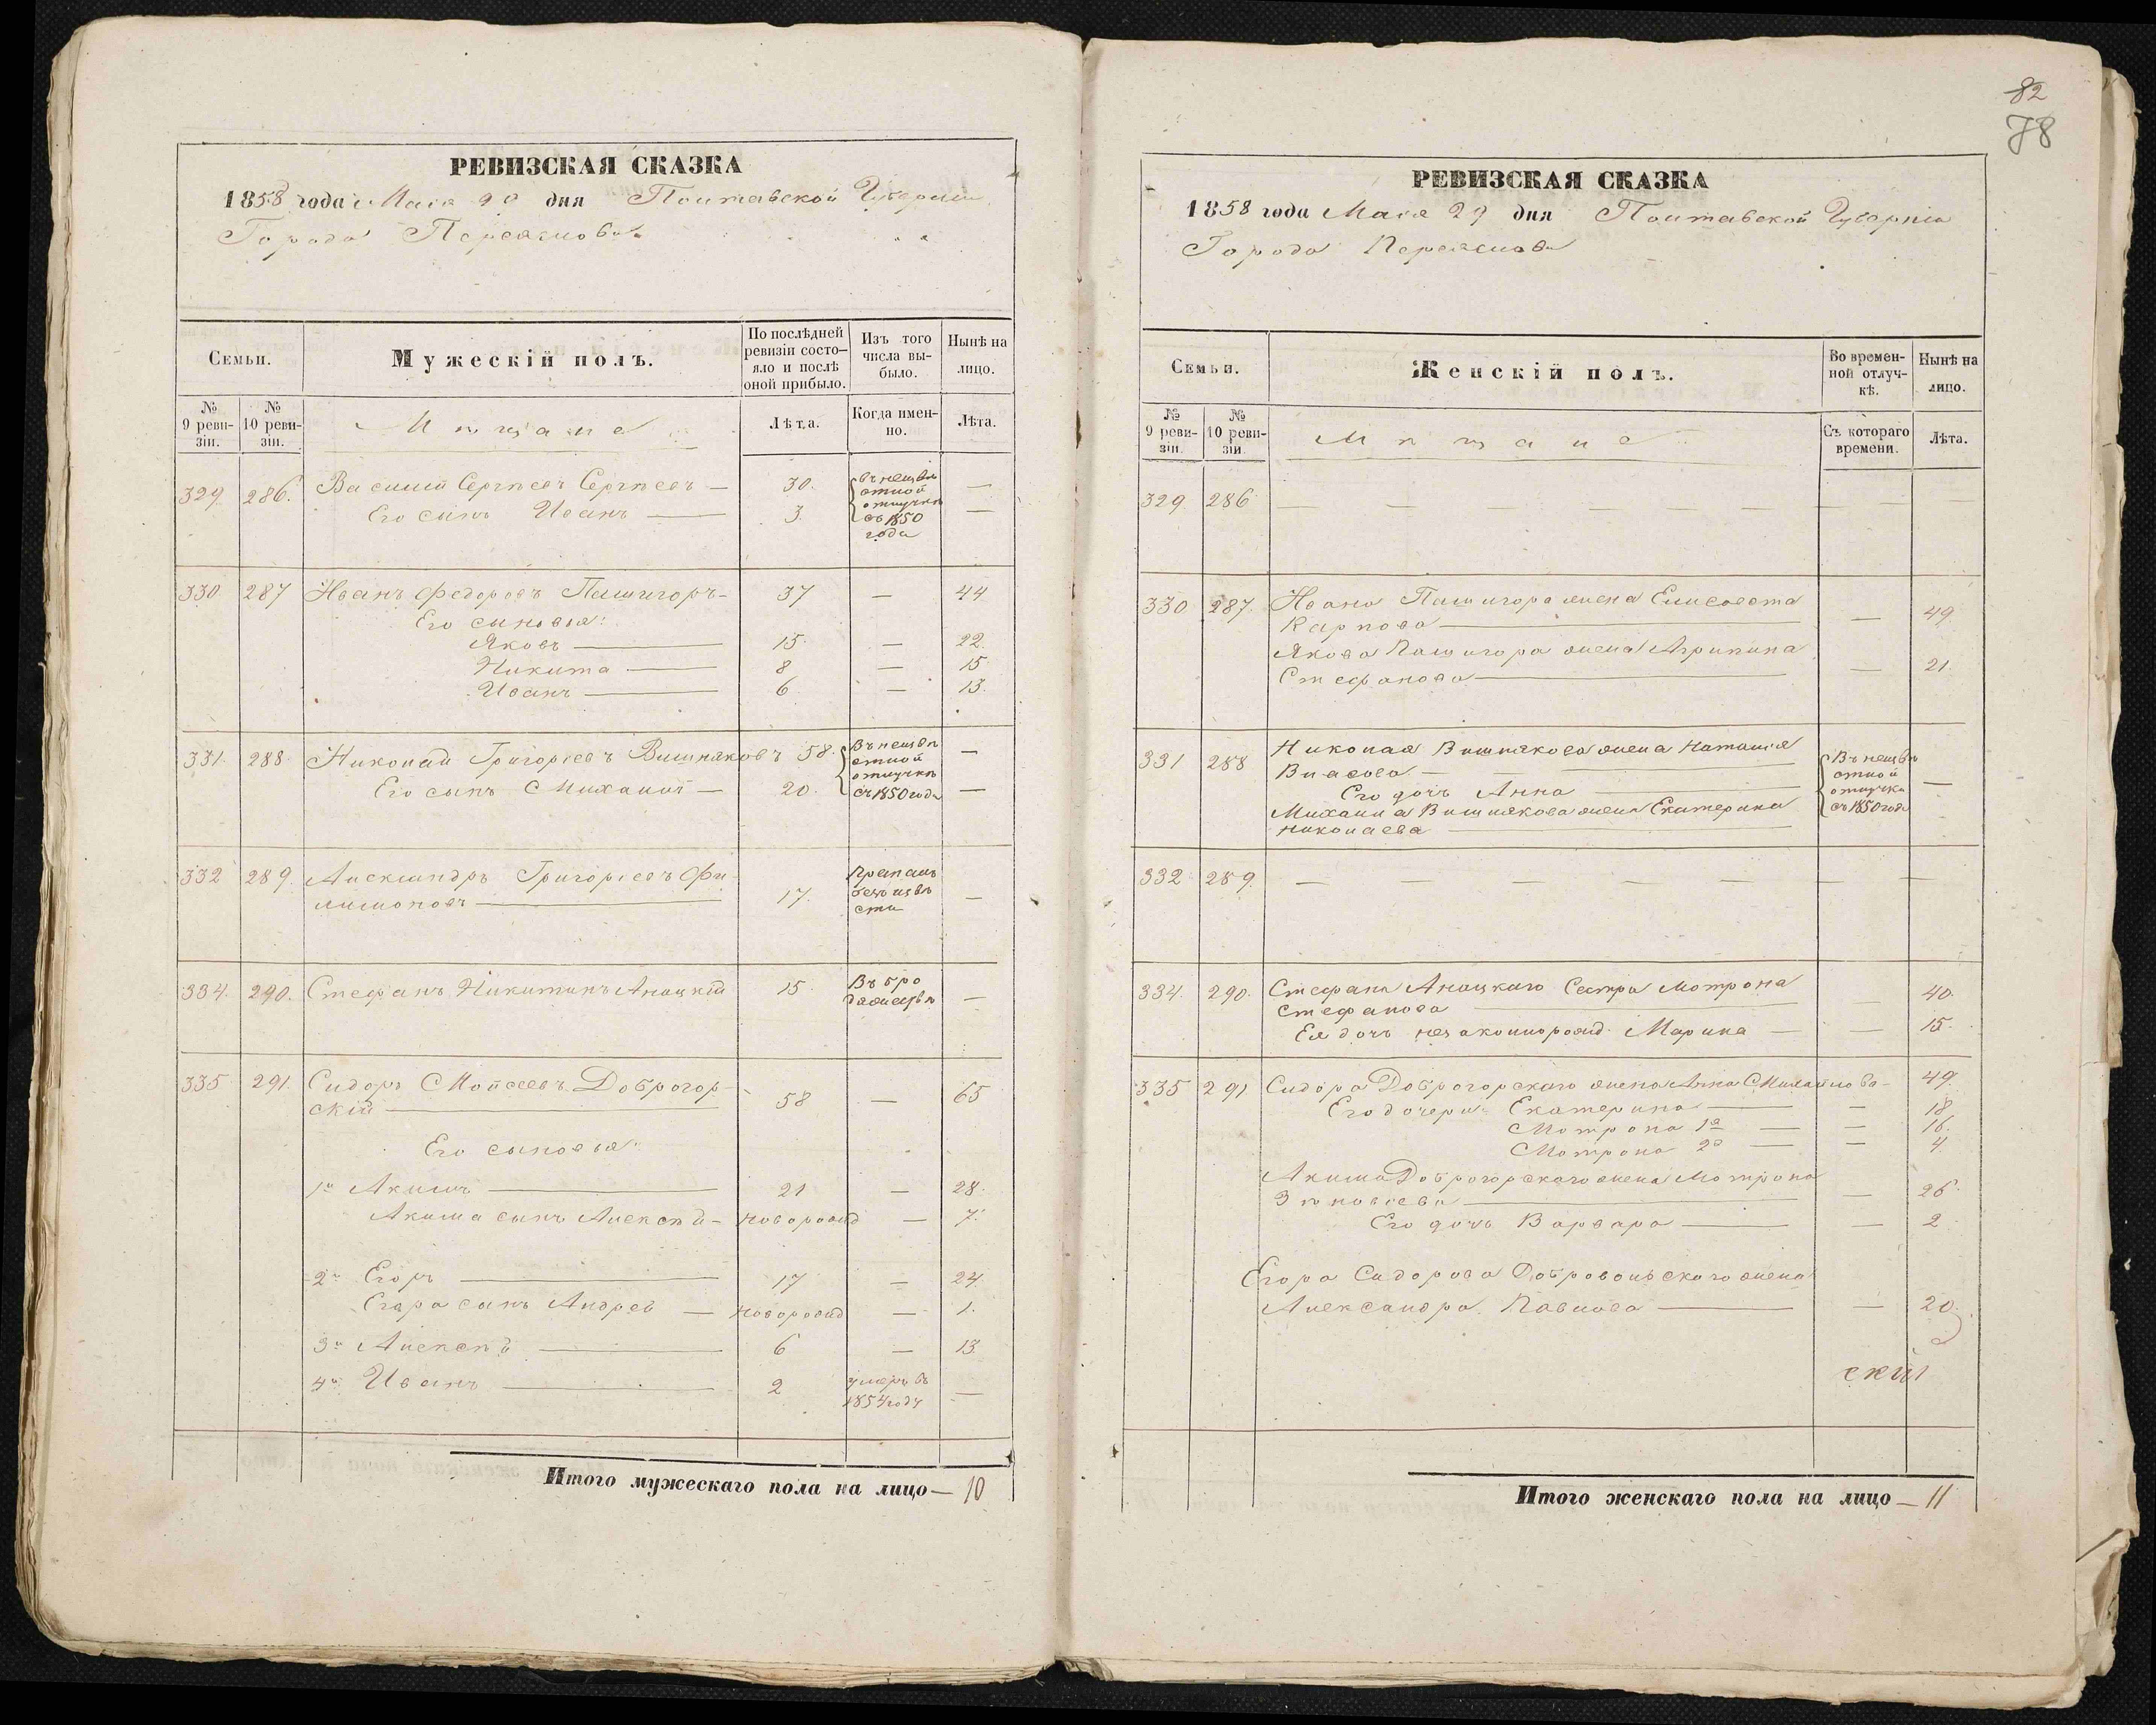 РЕВИЗСКАЯ СКАЗКА
1858 года Мая 29 дня Полтавской Губерніи
Города Переяслова
Семьи.
Мужескій полъ.
По послѣдней ревизіи состо-яло и послѣ оной прибыло.
Изъ того числа вы-было.
Нынѣ на лицо.
№ 9 реви-зіи.
№ 10 реви-зіи.
Мѣщане
Лѣта.
Когда имен-но.
Лѣта.
329. 286. Василій Сергѣевъ Сергѣевъ — 30. въ неизвѣ —
Его сынъ Иванъ — 3. стной отлучкѣ —
съ 1850
года
330 287 Иванъ Федоровъ Пашигоръ — 37 — 44
Его сыновья:
Яковъ — 15. — 22.
Никита — 8 — 15
Иванъ — 6. — 13.
331. 288. Николай Григорьевъ Вишняковъ 58. Въ неизвѣ —
стной
отлучкѣ
Его сынъ Михаилъ — 20. съ 1850 года —
332 289. Александръ Григорьевъ Фи- Пропалъ
лимоновъ — 17. безъ извѣ —
сти
334. 290. Стефанъ Никитинъ Аноцкій 15. Въ бро
дяжеств —
335 291. Сидоръ Мойсеевъ Доброгор-
скій — 58 — 65
Его сыновья:
1й Акимъ — 21 — 28.
Акима сынъ Алексѣй — новорожд — 7.
2й Егоръ — 17 — 24.
Егора сынъ Андрей — новорожд — 1.
3й Алексѣй — 6 — 13.
4й Иванъ — 2 умеръ въ
1854 году —
Итого мужескаго пола на лицо — 10
82
78
РЕВИЗСКАЯ СКАЗКА
1858 года Мая 29 дня Полтавской Губерніи
Города Переяслова
Семьи.
Женскій полъ.
Во времен-ной отлуч-кѣ.
Нынѣ на лицо.
№ 9 реви-зіи.
№ 10 реви-зіи.
Мѣщане
Съ котораго времени.
Лѣта.
329. 286 — — — — — — — — —
330 287. Ивана Пашигора жена Елисавета
Карпова — — 49.
Якова Пашигора жена Агрипина
Стефанова — — 21.
331 288 Николая Вишнякова жена Наталія
Власова — Въ неизвѣ
Его дочь Анна — стной
отлучкѣ —
Михаила Вишнякова жена Екатерина съ 1850 года
Николаева —
332 289. — — — — — — —
334. 290. Стефана Аноцкаго Сестра Мотрона
Стефанова — — 40.
Ея дочь незаконнорожд. Марина — — 15.
335 291. Сидора Доброгорскаго жена Анна Михайлова — 49.
Его дочери: Екатерина — — 18
Мотрона 1я — — 16.
Мотрона 2я — — 4.
Акима Доброгорскаго жена Мотрона
Зѣновіева — — 26.
Его дочь Варвара — — 2.
Егора Сидорова Добровольскаго жена
Александра Павлова — — 20.
скій
Итого женскаго пола на лицо — 11